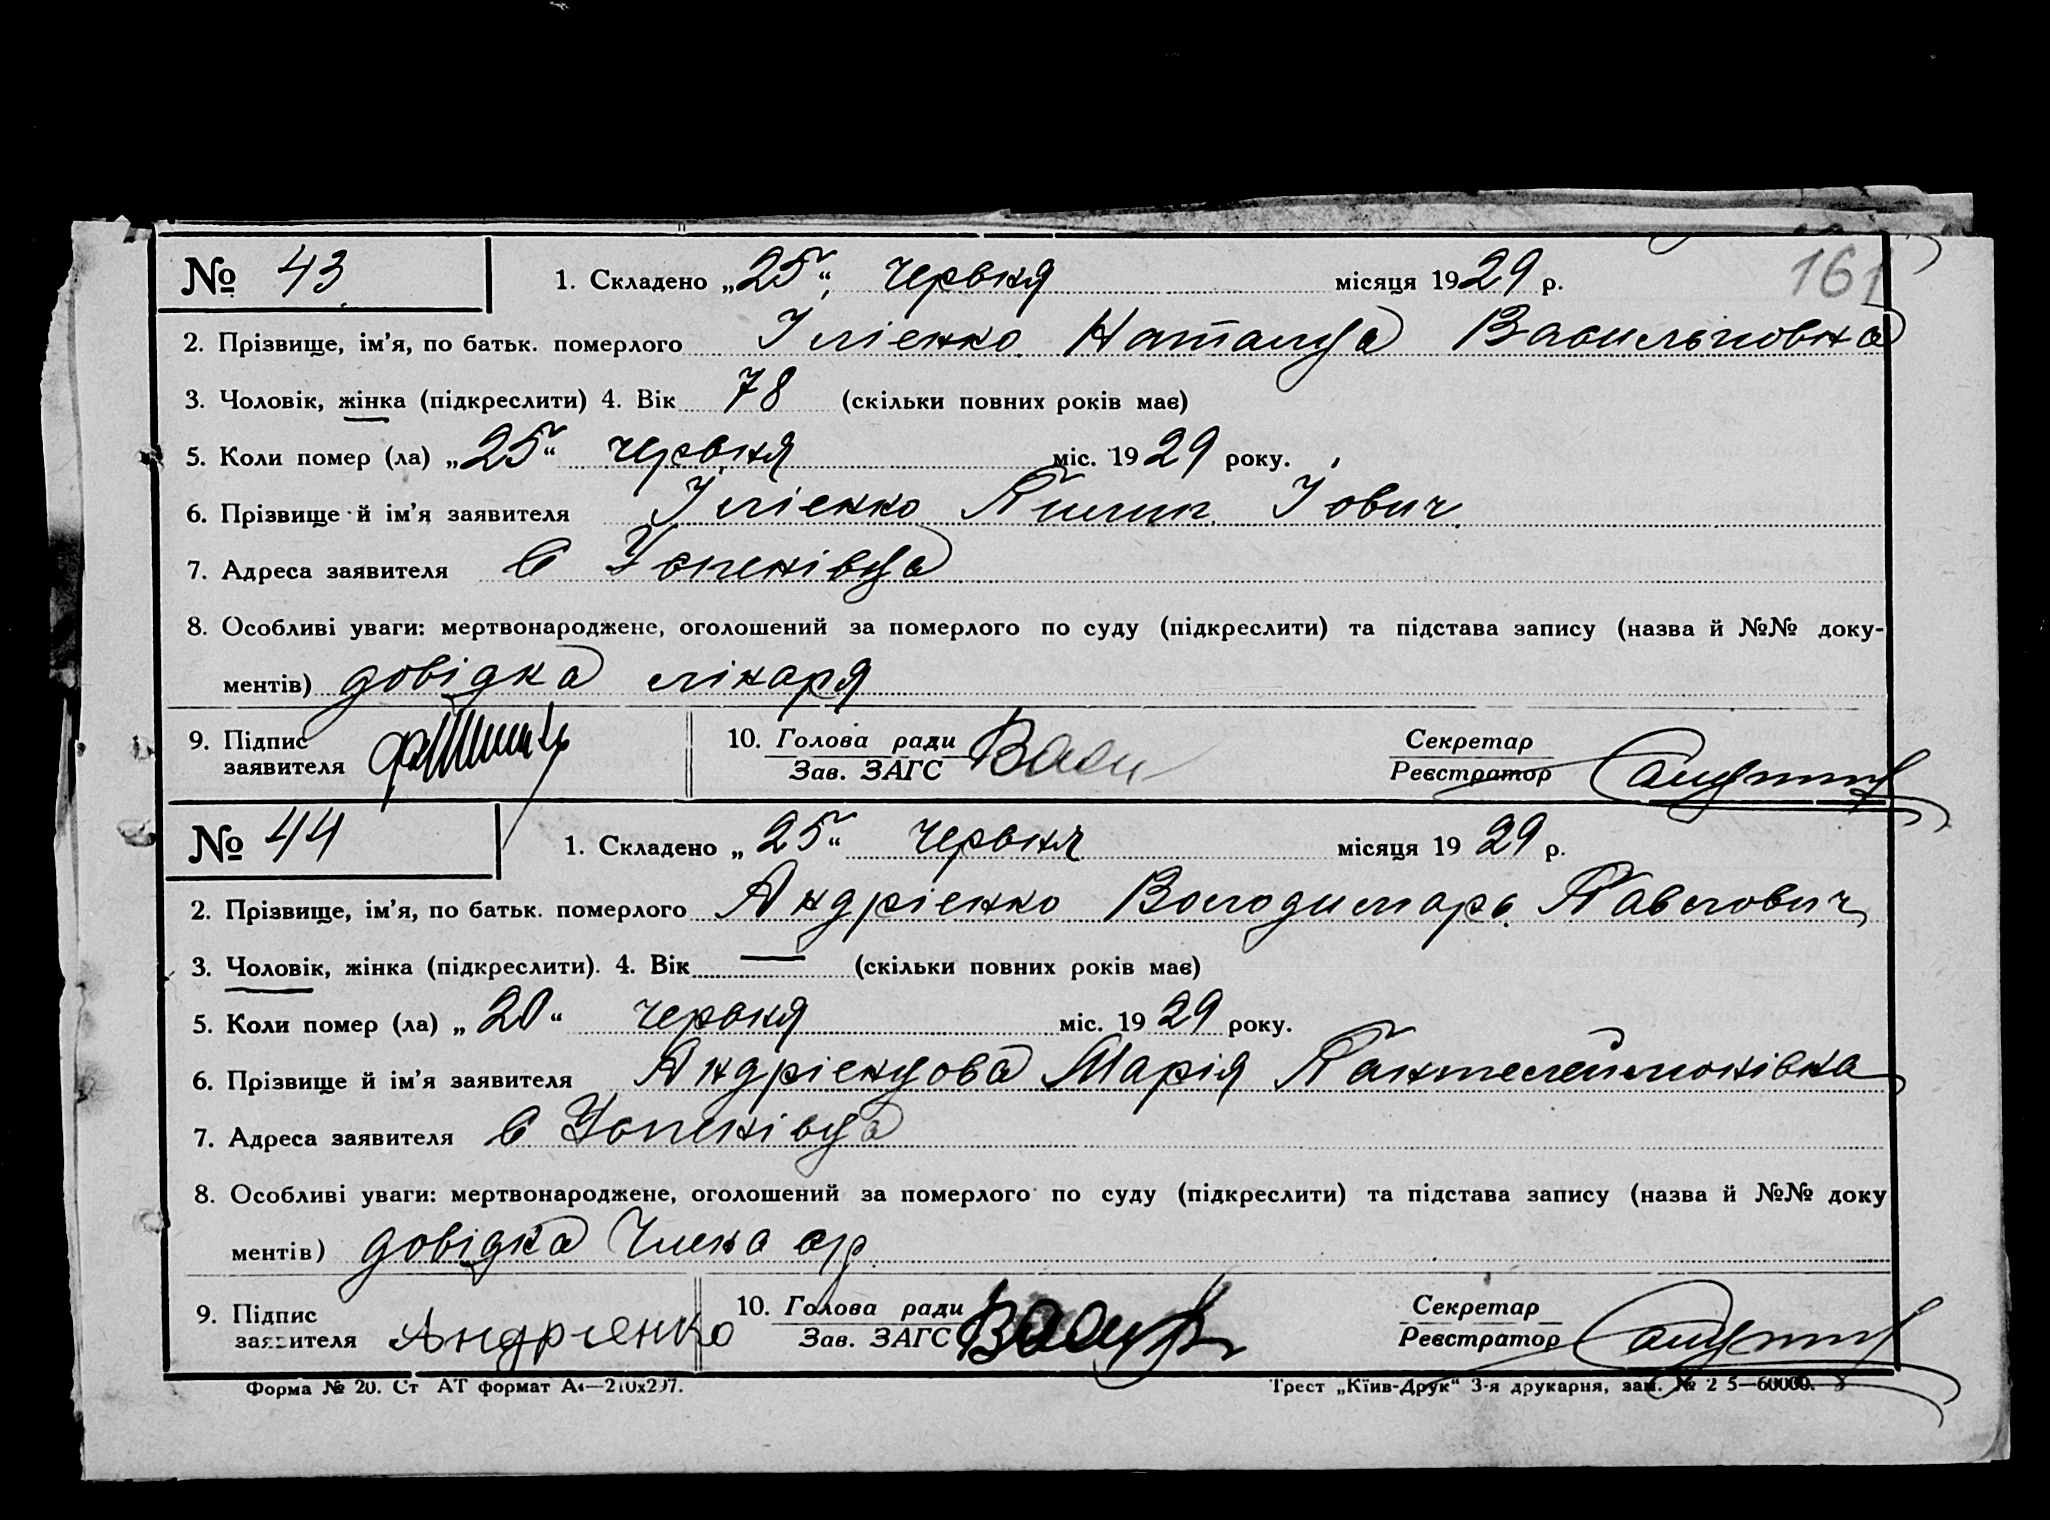 161
№ 43
1. Складено „25“ червня місяця 1929 р.
2. Прізвище, ім'я, по батьк. померлого Ілієнко Наталця Васильовна
3. Чоловік, жінка (підкреслити) 4. Вік 78 (скільки повних років має)
5. Коли помер (ла) „25“ червня міс. 1929 року.
6. Прізвище й ім'я заявителя Ілієнко Пилип Іович
7. Адреса заявителя с
8. Особливі уваги: мертвонароджене, оголошений за померлого по суду (підкреслити) та підстава запису (назва й №№ доку-
ментів) довідка лікаря
9. Підпис
заявителя
10. Голова ради
Зав. ЗАГС
Секретар
Реєстратор
№ 44
1. Складено „25“ червня місяця 1929 р.
2. Прізвище, ім'я, по батьк. померлого Андрієнко Володимарь Павлович
3. Чоловік, жінка (підкреслити). 4. Вік — (скільки повних років має)
5. Коли помер (ла) „20“ червня міс. 1929 року.
6. Прізвище й ім'я заявителя Андрієнцова Марія Пантелеймонівна
7. Адреса заявителя с
8. Особливі уваги: мертвонароджене, оголошений за померлого по суду (підкреслити) та підстава запису (назва й №№ доку
ментів) довідка Члена с/р
9. Підпис
заявителя Андрієнко
10. Голова ради
Зав. ЗАГС
Секретар
Реєстратор
Форма № 20. Ст АТ формат А4—210х297.
Трест „Київ-Друк“ 3-я друкарня, зам. № 2 5—60000.